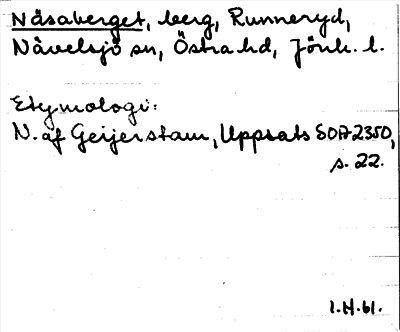 Näsaberget, berg, Runneryd,
Nävelsjö sn, Östra hd, Jönk. l.
Etymologi:
N. af Geijerstam, Uppsats SOA 2350,
s. 22.
1.H.61.